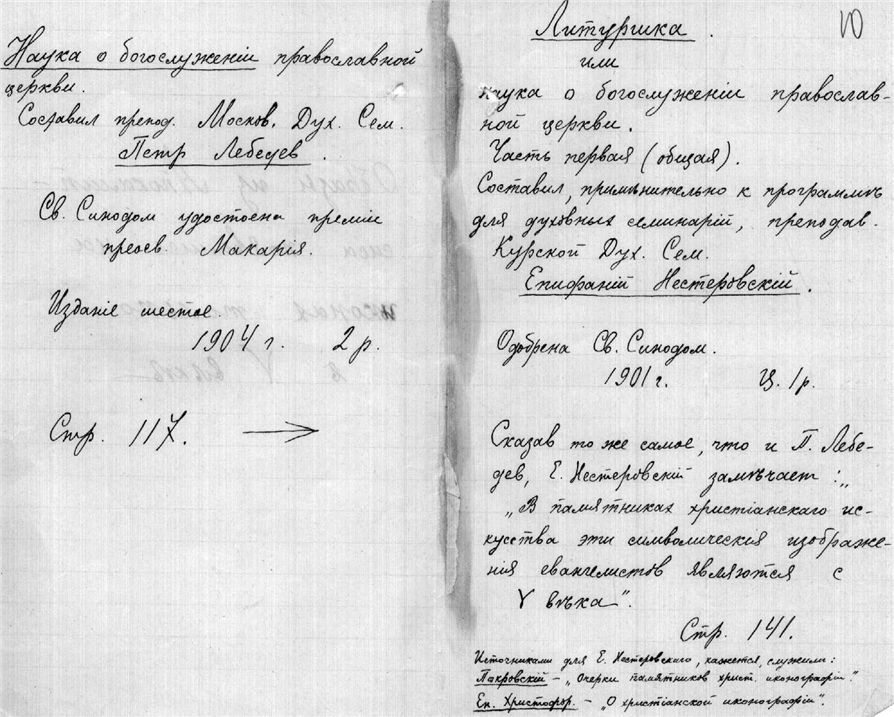 Наука о богослуженіи православной
церкви.
Составил препод. Москов. Дух. Сем.
Петр Лебедев.
Св. Синодом удостоена преміи
преосв Макарія.
Изданіе шестое
1904 г. 2 р.
Стр. 117.
10
Литургика.
или
наука о богослуженіи православ-
ной церкви.
Часть первая (общая).
Составил, примѣнительно к программѣ
для духовных семинарій, преподав.
Курской Дух. Сем.
Епифаній Нестеровскій.
Одобрена Св. Синодом.
1901 г. Ц. 1 р.
Сказав то же самое, что и П. Лебе-
дев, Е. Нестеровскій замѣчает:„
„В памятниках христіанскаго ис-
кусства эти символическія изображе-
нія евангелистов являются с
V вѣка".
Стр. 141.
Источниками для Е. Нестеровскаго, кажется, служили:
Покровскій – „Очерки памятников христ. иконографіи".
Еп. Христофор. – „О христіанской иконографіи".